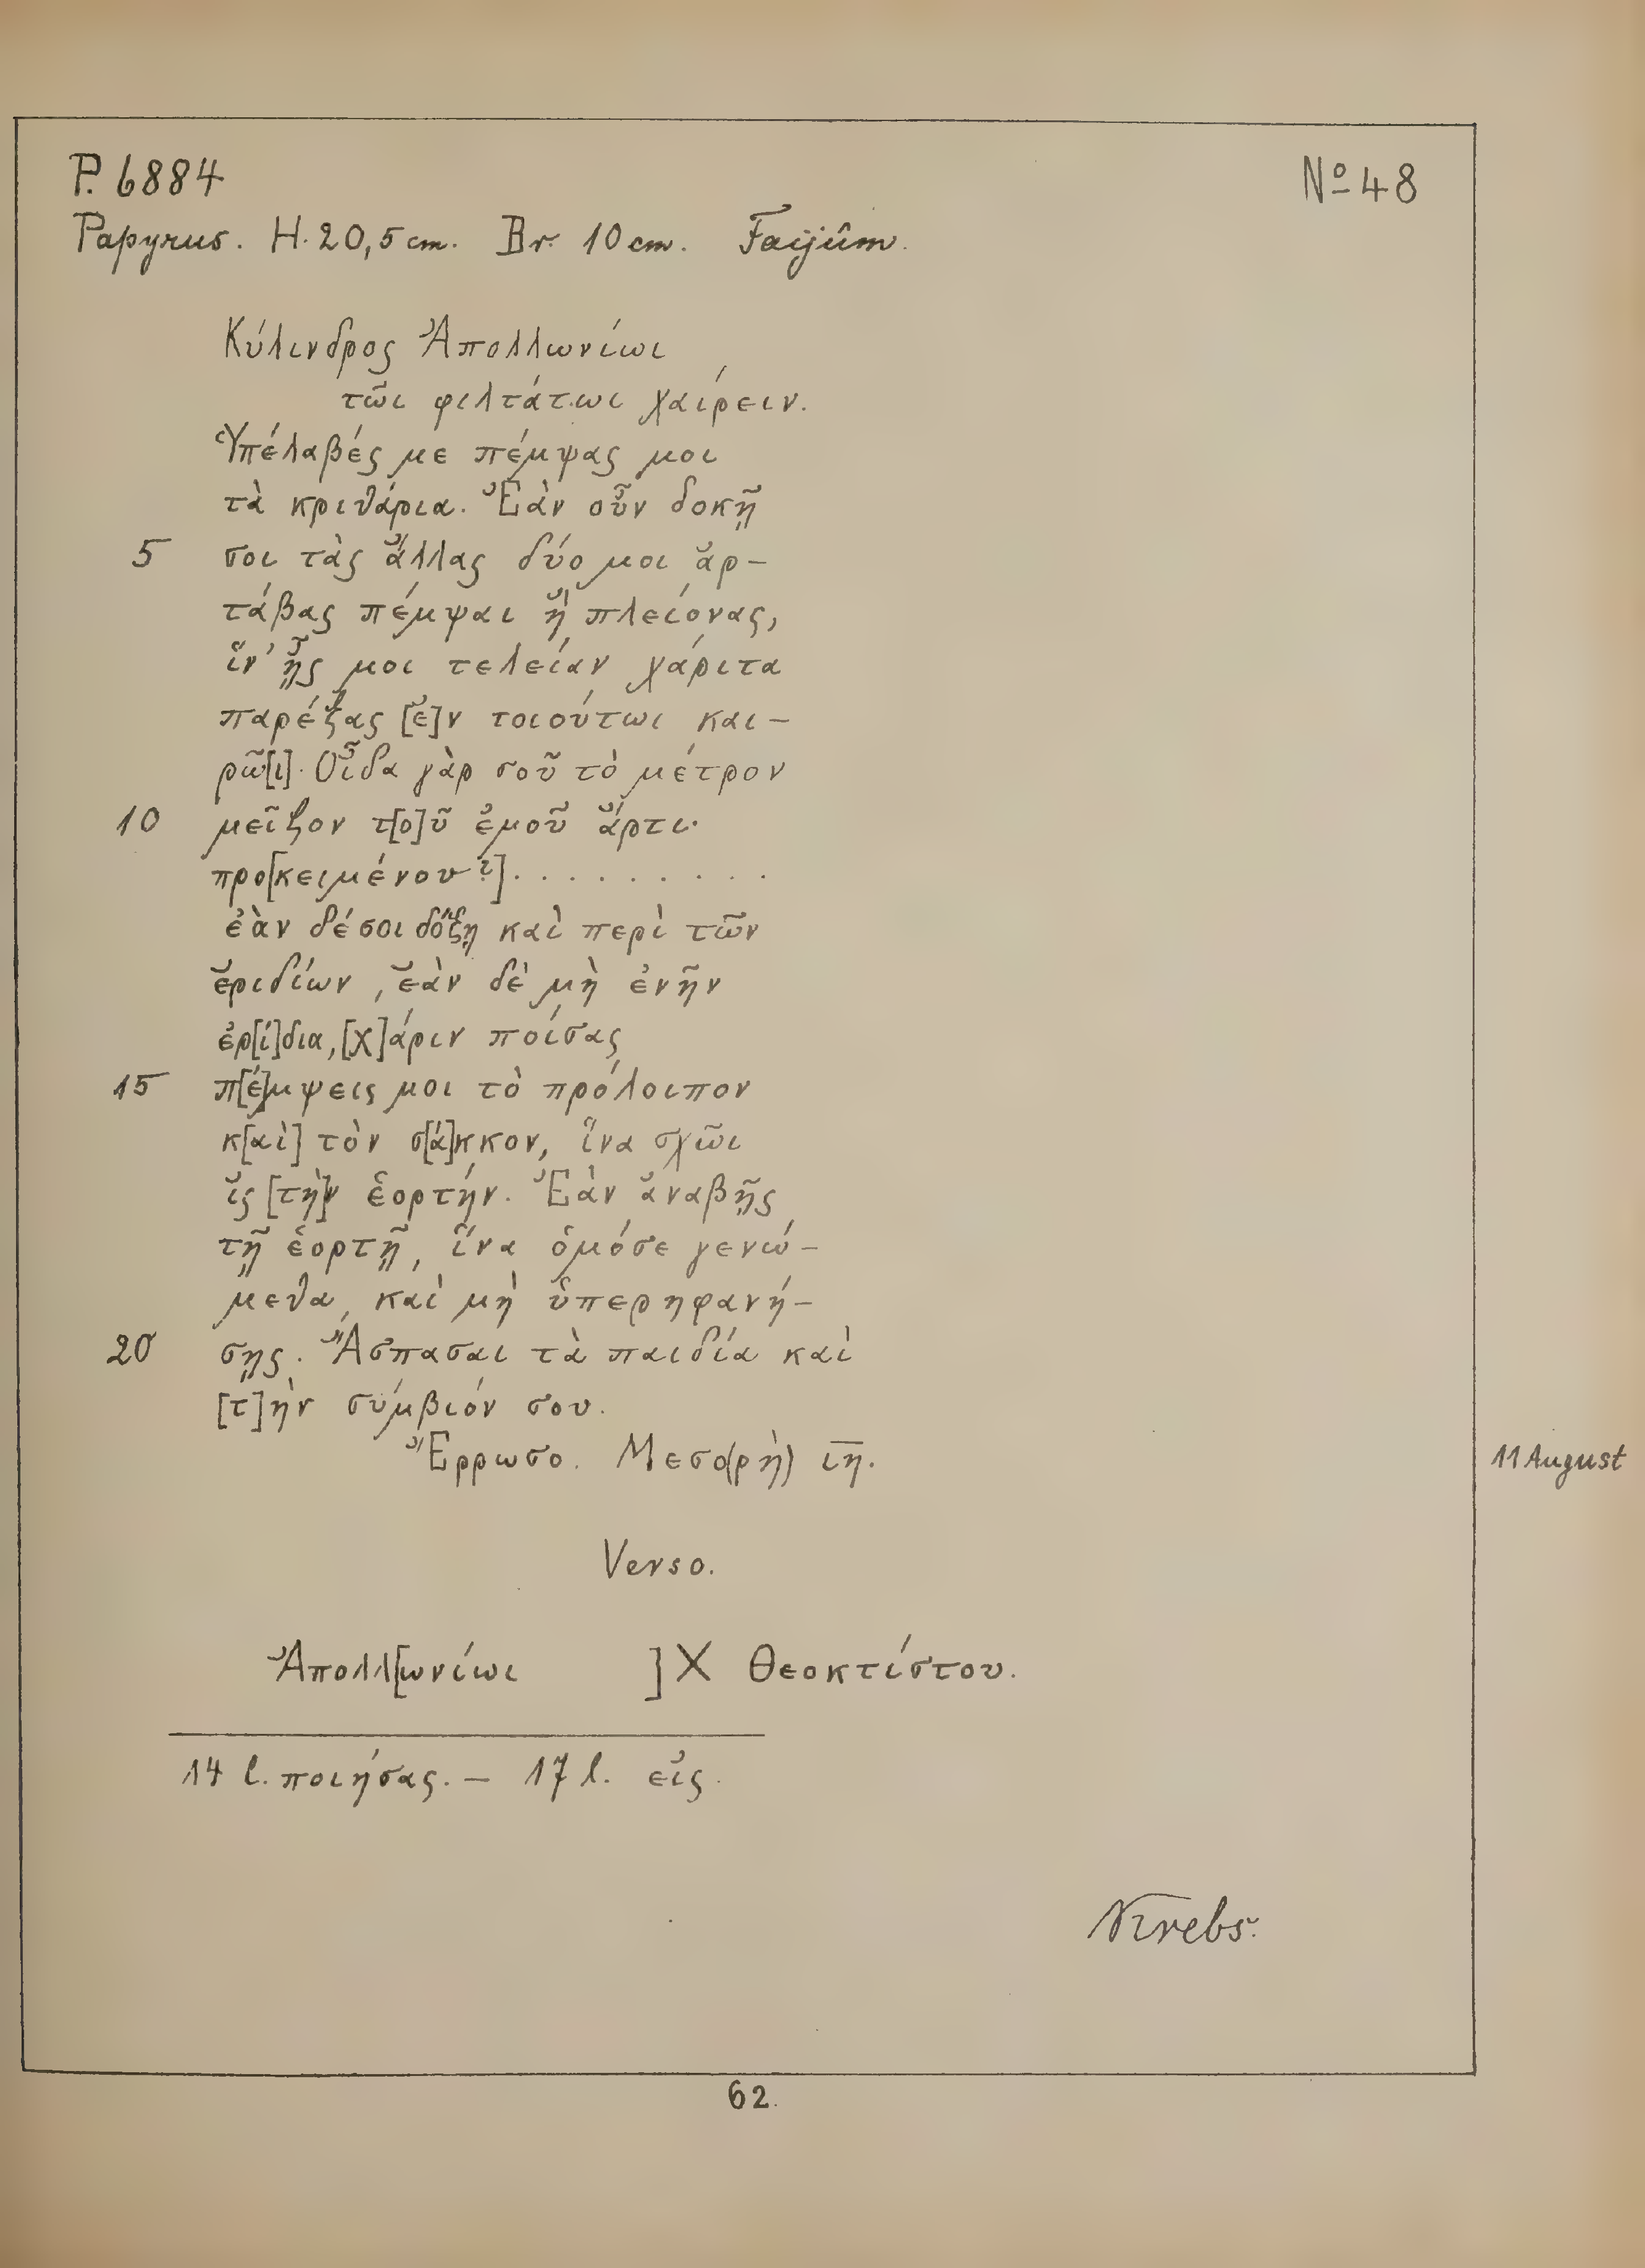 P. 6884
Nº 48
Papyrus. H. 20,5 cm. Br. 10 cm. Faijûm.
Κύλινδρος Ἀπολλωνίωι
τῶι φιλτάτωι χαίρειν.
Ὑπέλαβές με πέμψας μοι
τὰ κριθάρια. Ἐὰν οὖν δοκῇ
5 σοι τὰς ἄλλας δύο μοι ἀρ-
τάβας πέμψαι ἢ πλείονας,
ἵν' ᾖς μοι τελείαν χάριτα
παρέξας [ἐ]ν τοιούτωι και-
ρῶ[ι]. Οἶδα γὰρ σοῦ τὸ μέτρον
10 μεῖζον τ[ο]ῦ ἐμοῦ ἄρτι.
προ[κειμένου?] . . . . . . . . .
ἐὰν δέ σοι δόξῃ καὶ περὶ τῶν
ἐριδίων, ἐὰν δὲ μὴ ἐνῆν
ἐρ[ί]δια, [χ]άριν ποίσας
15 π[έ]μψεις μοι τὸ πρόλοιπον
κ[αὶ] τὸν σ[ά]κκον, ἵνα σχῶι
ἰς [τὴ]ν ἑορτήν. Ἐὰν ἀναβῇς
τῇ ἑορτῇ, ἵνα ὁμόσε γενώ-
μεθα, καὶ μὴ ὑπερηφανή-
20 σῃς. Ἄσπασαι τὰ παιδία καὶ
[τ]ὴν σύμβιόν σου.
Ἔρρωσο. Μεσο(ρὴ) ι̅η̅.
11 August
Verso.
Ἀπολλ[ωνίωι ] X Θεοκτίστου.
14 l. ποιήσας. — 17 l. εἰς.
Krebs.
62.